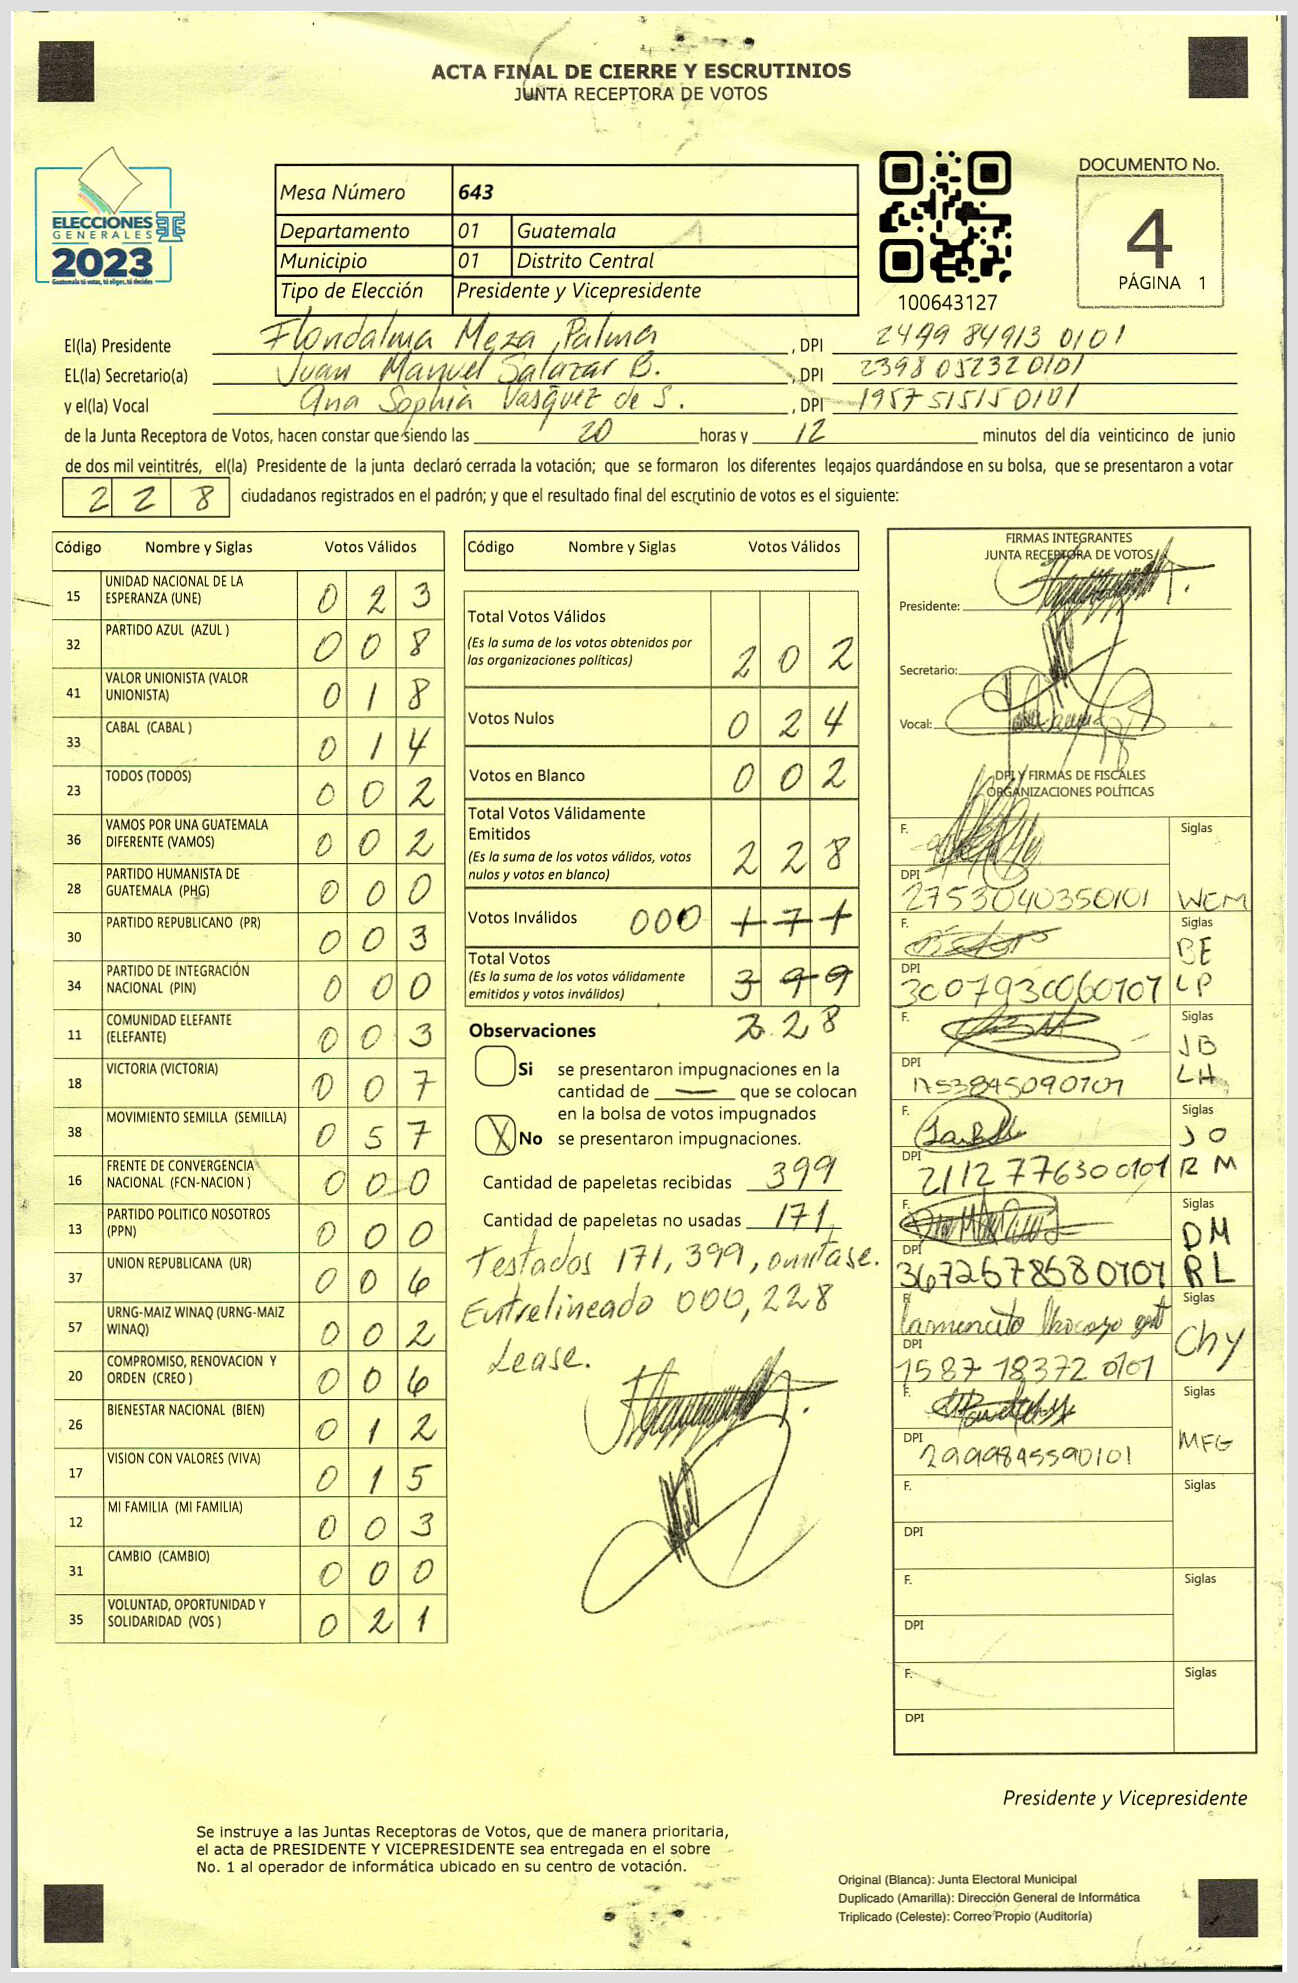 ACTA FINAL DE CIERRE Y ESCRUTINIOS
JUNTA RECEPTORA DE VOTOS
ELECCIONES
GENERALES
2023
Guatemala tú votas, tú eliges, tú decides
Mesa Número 643
Departamento 01 Guatemala
Municipio 01 Distrito Central
Tipo de Elección Presidente y Vicepresidente
100643127
DOCUMENTO No.
4
PÁGINA 1
El(la) Presidente Flondalma Meza Palma , DPI 2499 84913 0101
EL(la) Secretario(a) Juan Manuel Salazar B. , DPI 2398 05232 0101
y el(la) Vocal Ana Sophia Vasquez de S. , DPI 1957 51515 0101
de la Junta Receptora de Votos, hacen constar que siendo las 20 horas y 12 minutos del día veinticinco de junio
de dos mil veintitrés, el(la) Presidente de la junta declaró cerrada la votación; que se formaron los diferentes legajos guardándose en su bolsa, que se presentaron a votar
228 ciudadanos registrados en el padrón; y que el resultado final del escrutinio de votos es el siguiente:
Código Nombre y Siglas Votos Válidos
15 UNIDAD NACIONAL DE LA ESPERANZA (UNE) 0 2 3
32 PARTIDO AZUL (AZUL ) 0 0 8
41 VALOR UNIONISTA (VALOR UNIONISTA) 0 1 8
33 CABAL (CABAL ) 0 1 4
23 TODOS (TODOS) 0 0 2
36 VAMOS POR UNA GUATEMALA DIFERENTE (VAMOS) 0 0 2
28 PARTIDO HUMANISTA DE GUATEMALA (PHG) 0 0 0
30 PARTIDO REPUBLICANO (PR) 0 0 3
34 PARTIDO DE INTEGRACIÓN NACIONAL (PIN) 0 0 0
11 COMUNIDAD ELEFANTE (ELEFANTE) 0 0 3
18 VICTORIA (VICTORIA) 0 0 7
38 MOVIMIENTO SEMILLA (SEMILLA) 0 5 7
16 FRENTE DE CONVERGENCIA NACIONAL (FCN-NACION ) 0 0 0
13 PARTIDO POLITICO NOSOTROS (PPN) 0 0 0
37 UNION REPUBLICANA (UR) 0 0 6
57 URNG-MAIZ WINAQ (URNG-MAIZ WINAQ) 0 0 2
20 COMPROMISO, RENOVACION Y ORDEN (CREO ) 0 0 6
26 BIENESTAR NACIONAL (BIEN) 0 1 2
17 VISION CON VALORES (VIVA) 0 1 5
12 MI FAMILIA (MI FAMILIA) 0 0 3
31 CAMBIO (CAMBIO) 0 0 0
35 VOLUNTAD, OPORTUNIDAD Y SOLIDARIDAD (VOS ) 0 2 1
Código Nombre y Siglas Votos Válidos
Total Votos Válidos 2 0 2
(Es la suma de los votos obtenidos por
las organizaciones políticas)
Votos Nulos 0 2 4
Votos en Blanco 0 0 2
Total Votos Válidamente
Emitidos 2 2 8
(Es la suma de los votos válidos, votos
nulos y votos en blanco)
Votos Inválidos 000 1 7 1
Total Votos 3 9 9
(Es la suma de los votos válidamente
emitidos y votos inválidos)
2 2 8
Observaciones
Si se presentaron impugnaciones en la
cantidad de — que se colocan
en la bolsa de votos impugnados
X No se presentaron impugnaciones.
Cantidad de papeletas recibidas 399
Cantidad de papeletas no usadas 171
Testados 171, 399, omitase.
Entrelineado 000, 228
Lease.
FIRMAS INTEGRANTES
JUNTA RECEPTORA DE VOTOS
Presidente:
Secretario:
Vocal:
DPI Y FIRMAS DE FISCALES
ORGANIZACIONES POLÍTICAS
F. Siglas
DPI 2753040350101 WCM
F. Siglas
DPI 3007930060101 BE LP
F. Siglas
DPI 1753845090101 JB LH
F. Siglas
DPI 2112 77630 0101 JO RM
F. Siglas
DPI 3672678580101 DM RL
F. Siglas
DPI 1587 18372 0101 Chy
F. Siglas
DPI 2999845590101 MFG
F. Siglas
DPI
F. Siglas
DPI
F. Siglas
DPI
Presidente y Vicepresidente
Se instruye a las Juntas Receptoras de Votos, que de manera prioritaria,
el acta de PRESIDENTE Y VICEPRESIDENTE sea entregada en el sobre
No. 1 al operador de informática ubicado en su centro de votación.
Original (Blanca): Junta Electoral Municipal
Duplicado (Amarilla): Dirección General de Informática
Triplicado (Celeste): Correo Propio (Auditoría)